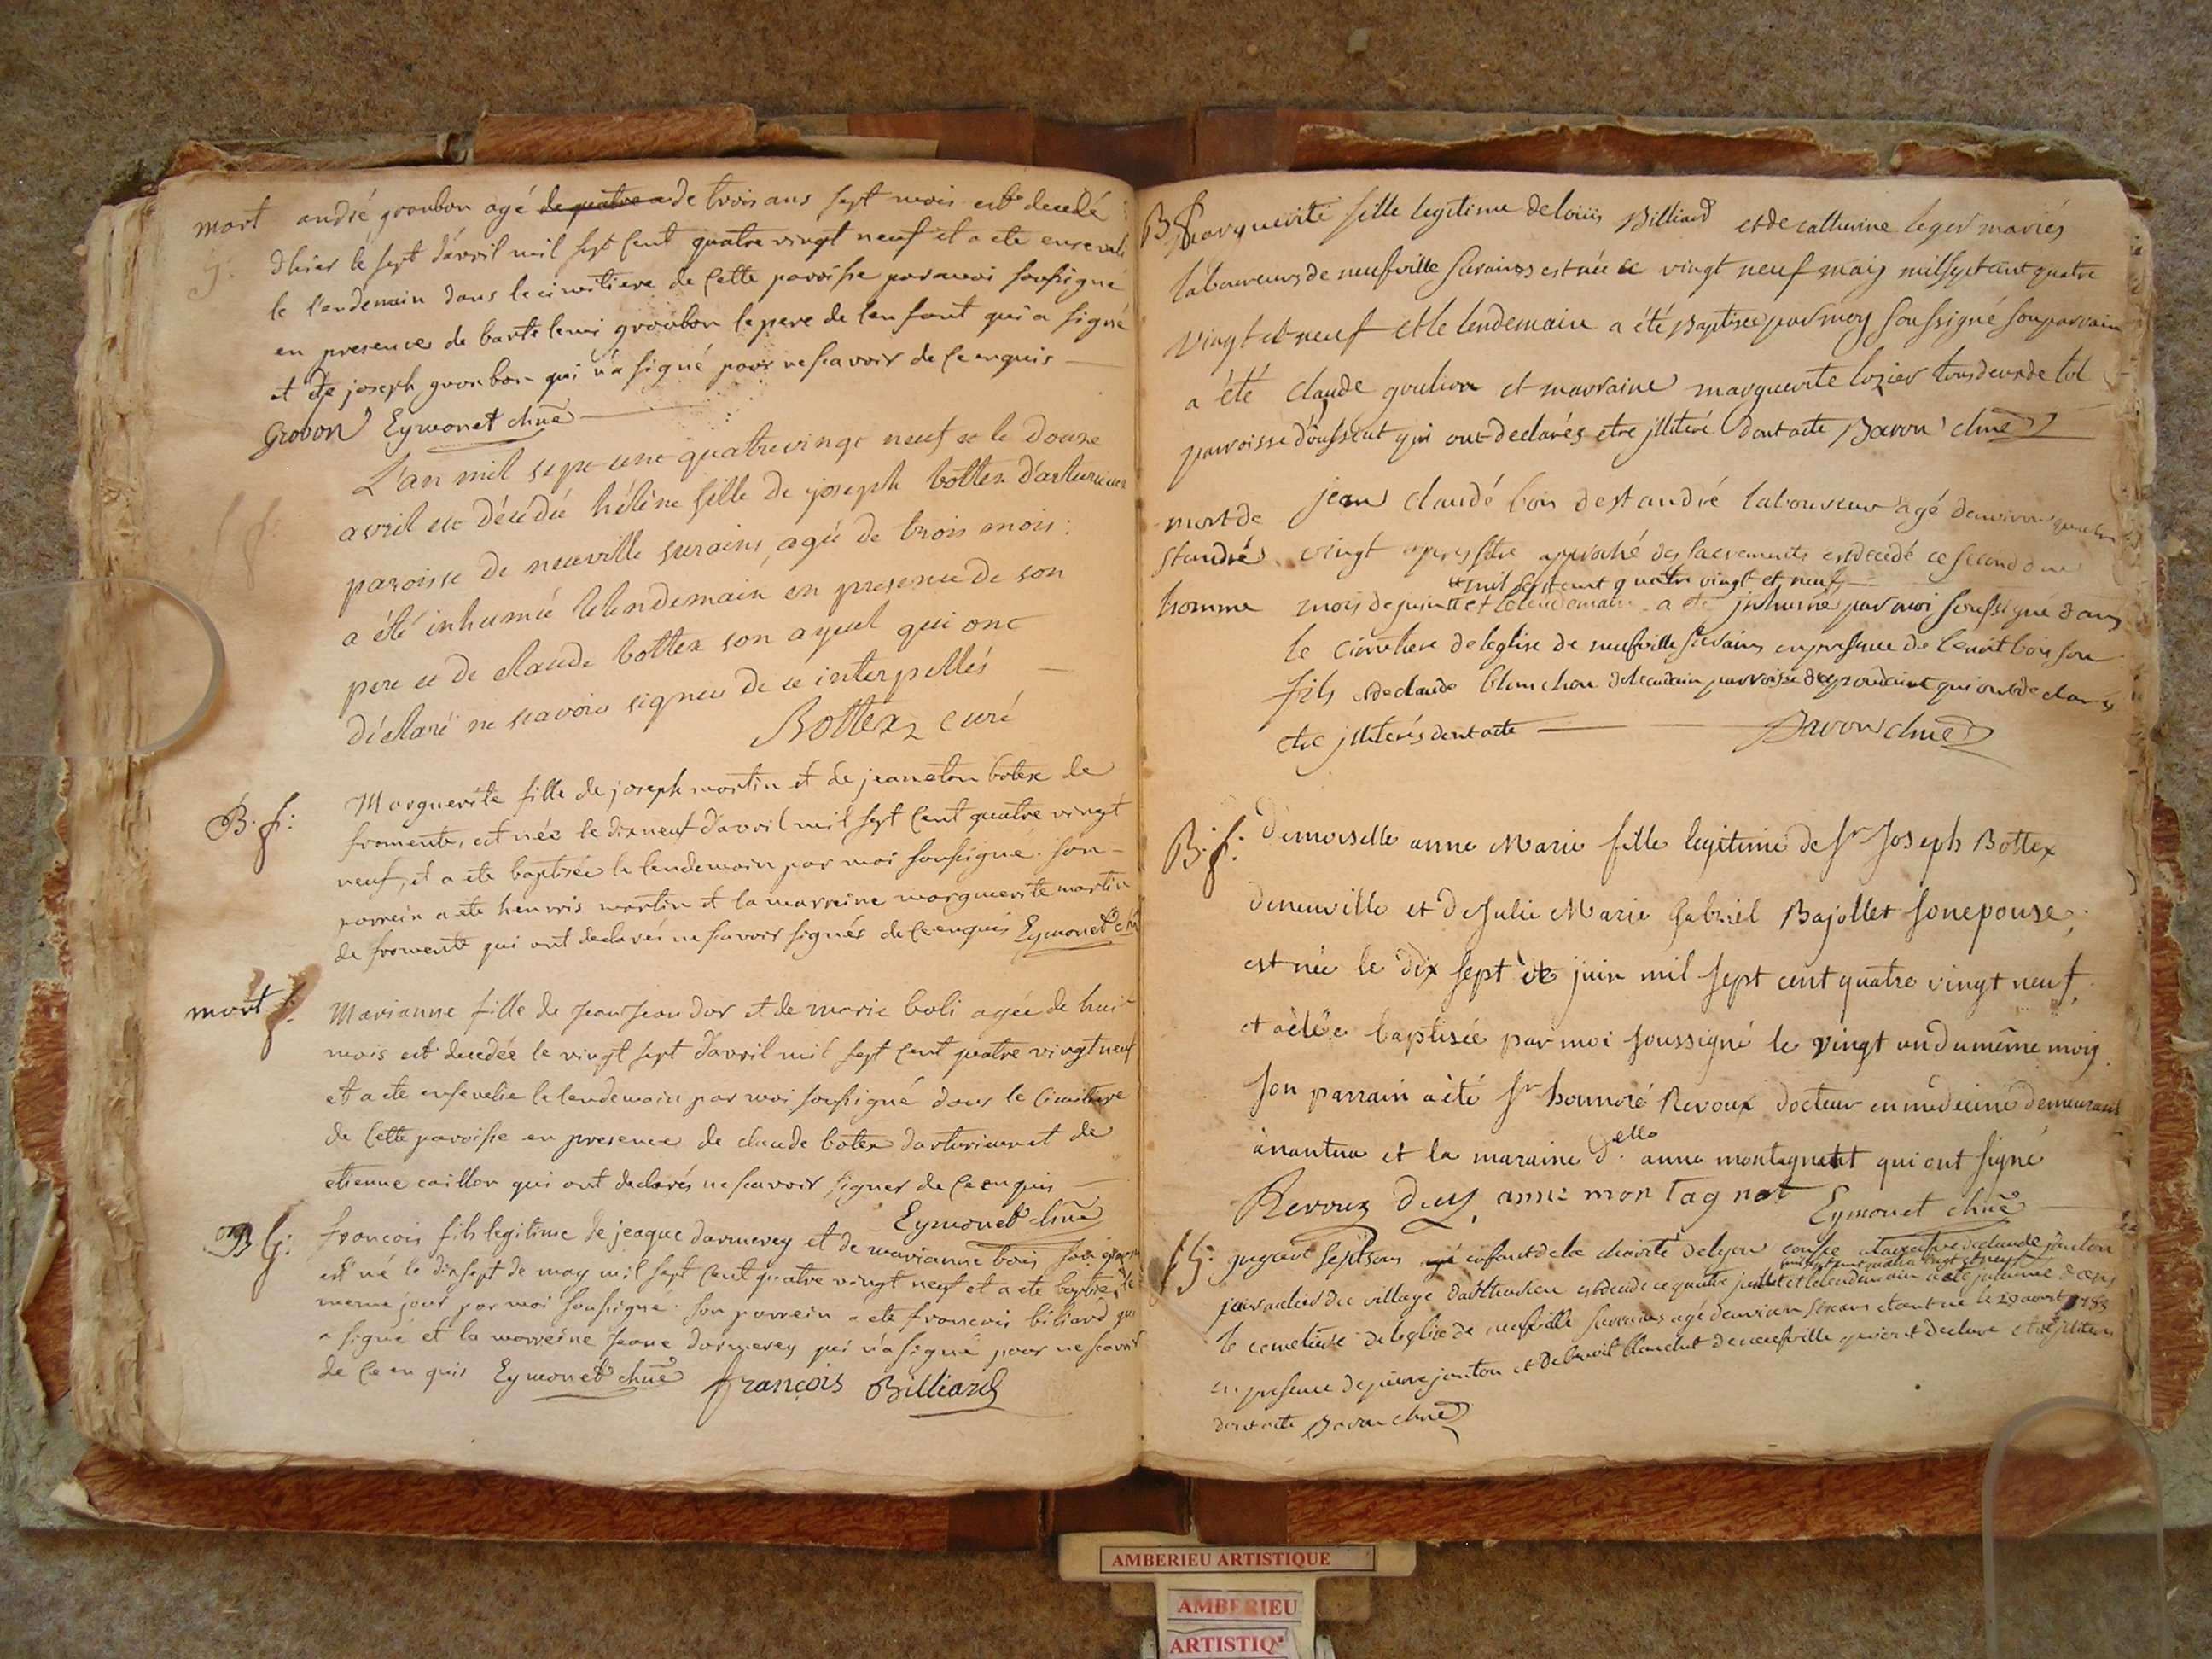 mort andré groubon agé de quatre a de trois ans sept mois est decedé
g: dhier le sept d'avril mil sept cent quatre vingt neuf et a ete enseveli
le lendemain dans le cimitiere de cette paroisse par moi soussigné
en presence de bartelemi groubon le pere de lenfant qui a signé
et de joseph groubon qui n'a signé pour ne scavoir de ce enquis
Grobon Eymonet chñe
L'an mil sept cent quatrevingt neuf et le douze
avril est décédée hélène fille de joseph bottex d'arturieux
paroisse de neuville surains, agée de trois mois:
a été inhumée le lendemain en presence de son
pere et de claude bottex son ayeul qui ont
déclaré ne scavoir signer de ce interpellés
Bottex curé
B. f: Marguerite fille de joseph martin et de jeaneton botex de
fromente, est née le dixneuf d'avril mil sept cent quatre vingt
neuf, et a ete baptisée le lendemain par moi soussigné. son
parrein a ete henris martin et la marreine marguerite martin
de fromente qui ont declarés ne scavoir signés de ce enquis Eymonet chñ
mort f: Marianne fille de jean dor et de marie boli agée de huit
mois est decedée le vingt sept d'avril mil sept cent quatre vingt neuf
et a ete ensevelie le lendemain par moi soussigné dans le cimitiere
de cette paroisse en presence de claude botex d'arturieux et de
etienne caillon qui ont declarés ne scavoir signer de ce enquis
Eymonet chñe
B G: francois fils legitime de jeaque darmerey et de marianne bois son epouse
est né le dixsept de may mil sept cent quatre vingt neuf et a ete baptisé le
meme jour par moi soussigné. son parrein a ete francois biliard qui
a signé et la marreine jeane darmerey qui n'a signé pour ne scavoir
de ce en quis Eymonet chñe françois Billiard
B f Marguerite fille legitime de loüis Billiard et de catherine leger mariés
laboureurs de neufville surains est née le vingt neuf may mil sept cent quatre
vingt et neuf et le lendemain a été Baptisée par moy soussigné son parrain
a été claude goulion et marraine marguerite lozier tous deux de tol
parroisse d'oussiat qui ont declarés etre jlliteré dont acte Baron chñe
mort de jean claude bois de st andré laboureur agé denviron quatre
st andrés vingt apres setre approché des sacrements est decedé ce second du
mil sept cent quatre vingt et neuf
homme mois de juin et le lendemain a été jnhumé par moi soussigné dans
le cimetiere de leglise de neufville surains en presence de benoit bois son
fils et de claude blanchon parroisse de qui ont declarés
etre jlliterés dont acte Baron chñe
B. f: Demoiselle anne Marie fille legitime de Sr Joseph Bottex
de neuville et de Julie Marie Gabriel Bajollet son epouse,
est née le dix sept de juin mil sept cent quatre vingt neuf,
et a été baptisée par moi soussigné le vingt un du même mois
son parrain a été Sr honnoré Revoux docteur en médecine demeurant
à nantua et la maraine delle anne montagnat qui ont signé
Revoux anne montagnat Eymonet chñe
enfant de la charité de lyon claude janton
mil sept cent quatre vingt et neuf
du village est decedé ce quatre juillet et le lendemain a été jnhumé dans
le cemetiere de leglise de neufville surains agé denviron six ans etant né le 29 avril 1783
en presence de pierre janton et de benoit blanchet de neufville qui ont declaré
dont acte Baron chñe
AMBERIEU ARTISTIQUE
AMBERIEU
ARTISTIQ